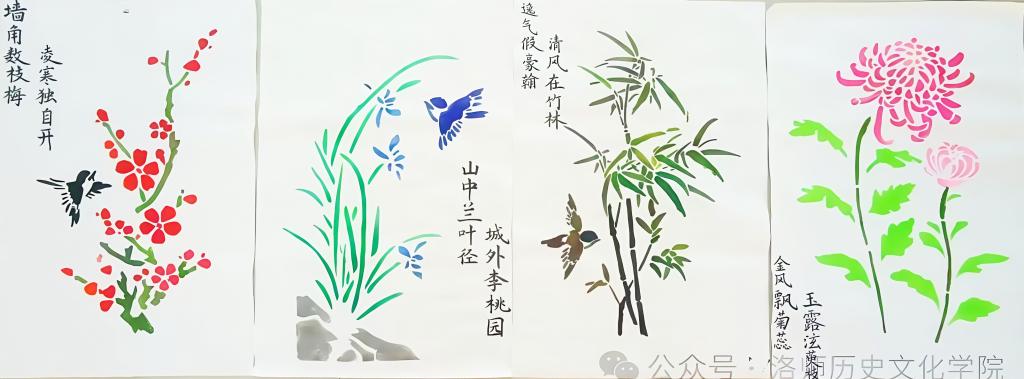 墙角数枝梅
凌寒独自开
山中兰叶径
城外李桃园
逸气假豪翰
清风在竹林
金风飘菊蕊
玉露泫萸枝
公众号：洛师历史文化学院